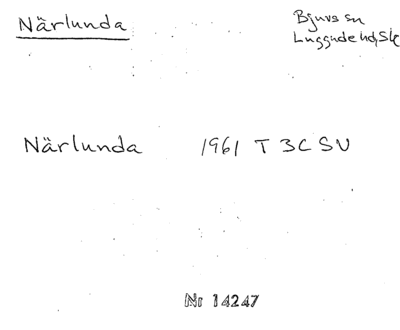 Närlunda
Bjuvs sn
Luggude hd, Sk
Närlunda 1961 T 3C SV
Nr 14247